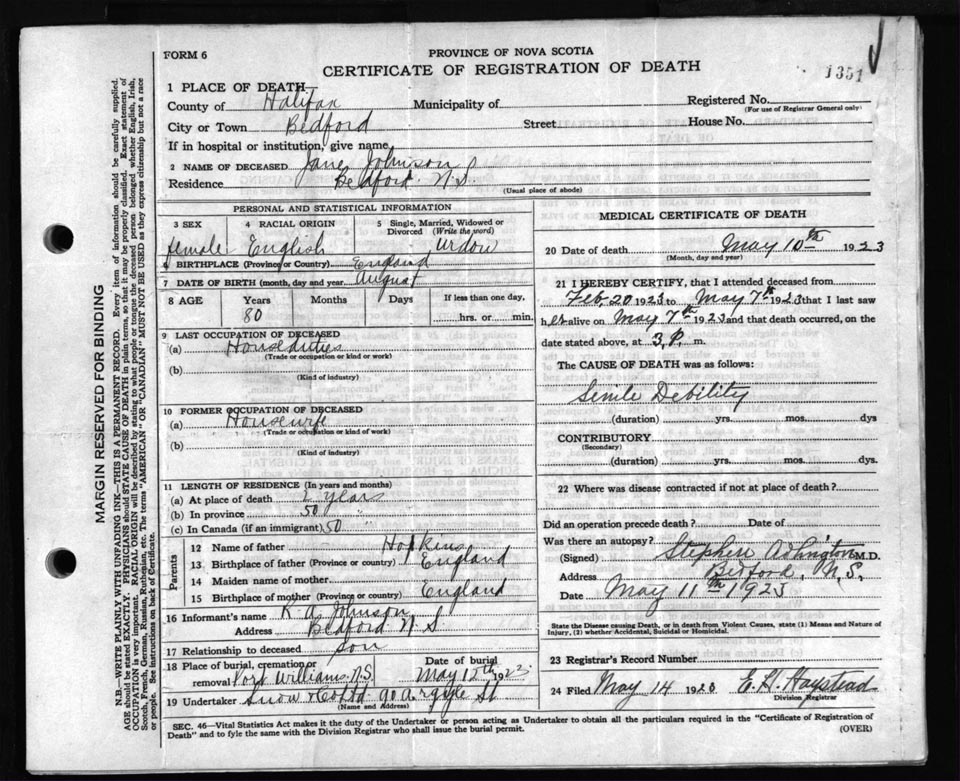 FORM 6
PROVINCE OF NOVA SCOTIA
CERTIFICATE OF REGISTRATION OF DEATH
1351
1 PLACE OF DEATH
County of Halifax Municipality of Registered No.
(For use of Registrar General only)
City or Town Bedford Street House No.
If in hospital or institution, give name
2 NAME OF DECEASED Jane Johnson
Residence Bedford N.S.
(Usual place of abode)
PERSONAL AND STATISTICAL INFORMATION
3 SEX 4 RACIAL ORIGIN 5 Single, Married, Widowed or Divorced (Write the word)
female English Widow
6 BIRTHPLACE (Province or Country) England
7 DATE OF BIRTH (month, day and year) August
8 AGE Years Months Days If less than one day,
80 hrs. or min.
9 LAST OCCUPATION OF DECEASED
(a) House duties
(Trade or occupation or kind or work)
(b)
(Kind of industry)
10 FORMER OCCUPATION OF DECEASED
(a) Housewife
(Trade or occupation or kind of work)
(b)
(Kind of industry)
11 LENGTH OF RESIDENCE (In years and months)
(a) At place of death 2 years
(b) In province 50 "
(c) In Canada (if an immigrant) 50 "
Parents
12 Name of father Hopkins
13 Birthplace of father (Province or country) England
14 Maiden name of mother
15 Birthplace of mother (Province or Country) England
16 Informant's name R. A. Johnson
Address Bedford N S
17 Relationship to deceased son
18 Place of burial, cremation or removal Port Williams N.S. Date of burial May 12th 1923
19 Undertaker Snow & Co Ltd. 90 Argyle St
(Name and Address)
MEDICAL CERTIFICATE OF DEATH
20 Date of death May 10th 1923
(Month, day and year)
21 I HEREBY CERTIFY, that I attended deceased from
Feb. 20 1923 to May 7th 1923 that I last saw
her alive on May 7th 1923 and that death occurred, on the
date stated above, at 3 P. m.
The CAUSE OF DEATH was as follows:
Senile Debility
(duration) yrs. mos. dys
CONTRIBUTORY
(Secondary)
(duration) yrs. mos. dys.
22 Where was disease contracted if not at place of death?
Did an operation precede death? Date of
Was there an autopsy?
(Signed) Stephen M.D.
Address Bedford, N.S,
Date May 11th 1923
State the Disease causing Death, or in death from Violent Causes, state (1) Means and Nature of
Injury, (2) whether Accidental, Suicidal or Homicidal.
23 Registrar's Record Number
24 Filed May 14 1920 E. H.
Division Registrar
SEC. 46—Vital Statistics Act makes it the duty of the Undertaker or person acting as Undertaker to obtain all the particulars required in the "Certificate of Registration of
Death" and to fyle the same with the Division Registrar who shall issue the burial permit.
(OVER)
MARGIN RESERVED FOR BINDING
N.B.—WRITE PLAINLY WITH UNFADING INK—THIS IS A PERMANENT RECORD. Every item of information should be carefully supplied.
AGE should be stated EXACTLY. PHYSICIANS should STATE CAUSE OF DEATH in plain terms, so that it may be properly classified. Exact statement of
OCCUPATION is very important. RACIAL ORIGIN will be described by stating to what people or tongue the deceased person belonged whether English, Irish,
Scotch, French, German, Russian, Ruthenian, etc. The terms "AMERICAN" OR "CANADIAN" MUST NOT BE USED as they express citizenship but not a race
or people. See instructions on back of Certificate.